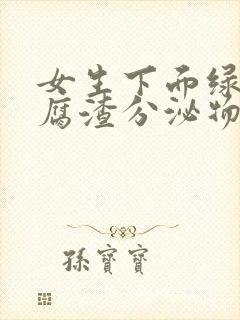 女生下面绿
腐渣分泌物
孫寶寶